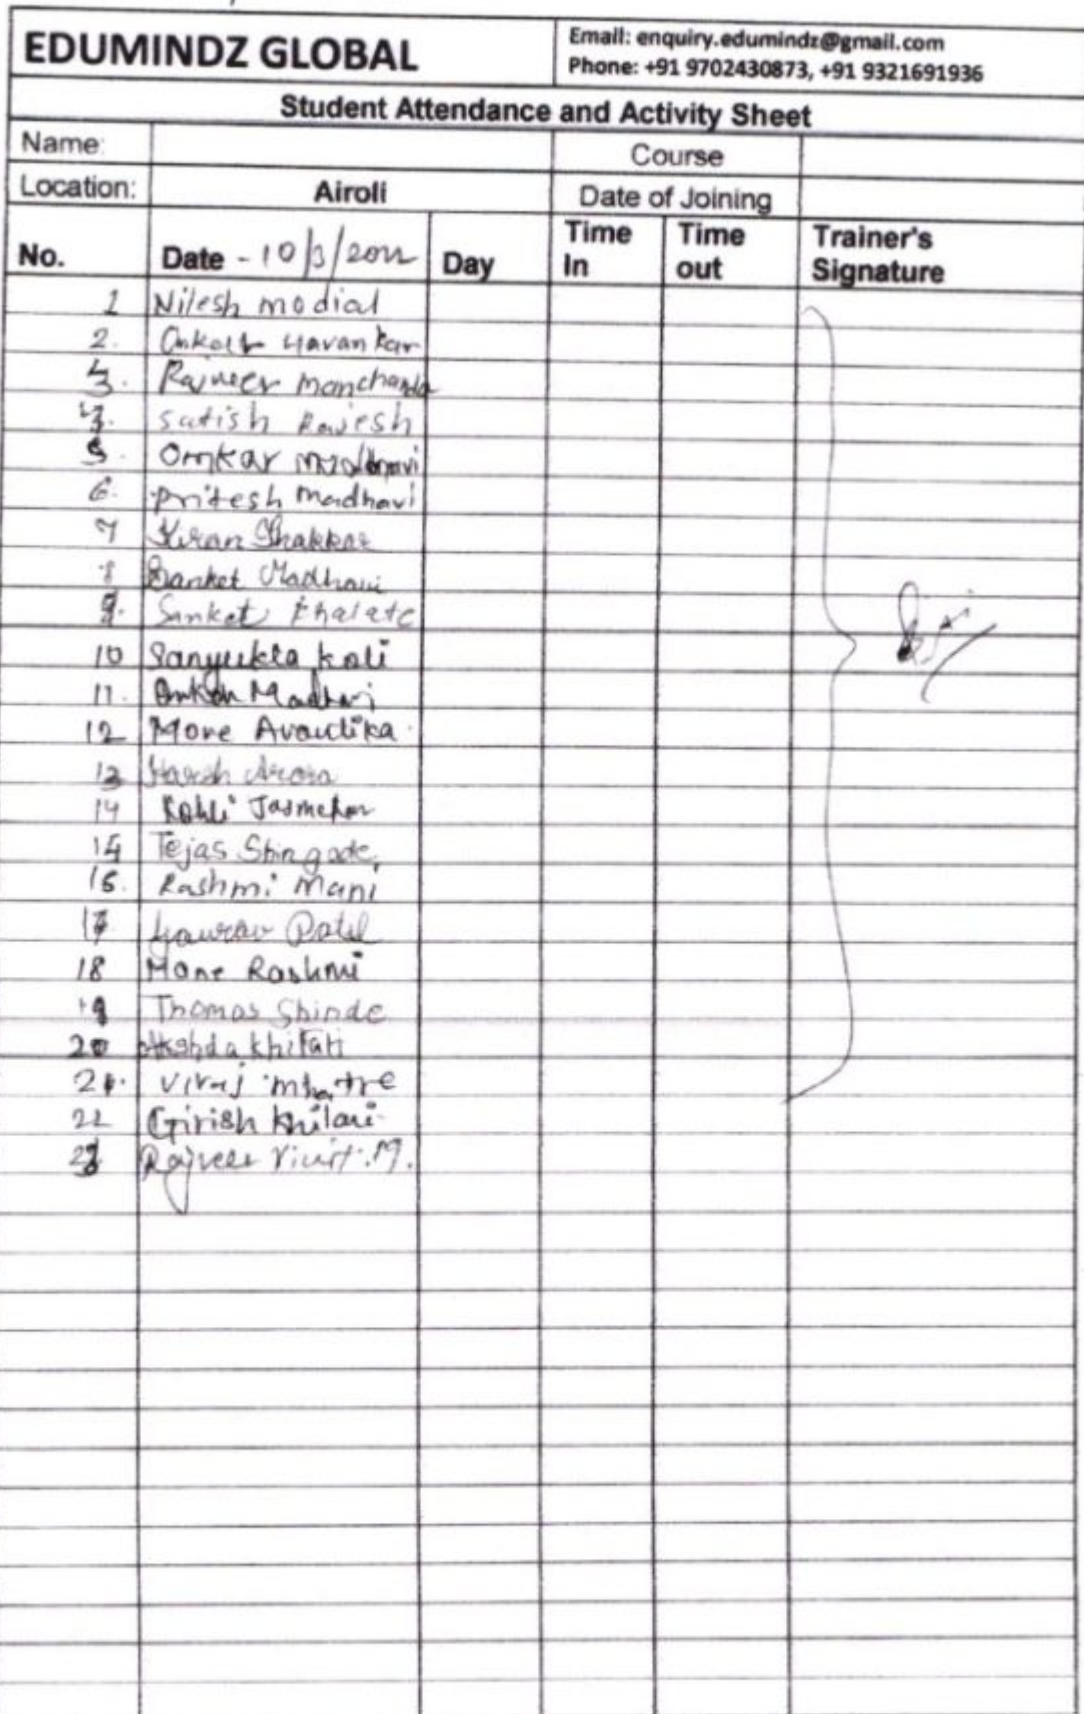 EDUMINDZ GLOBAL
Email: enquiry.edumindz@gmail.com
Phone: +91 9702430873, +91 9321691936
Student Attendance and Activity Sheet
Name: Course
Location: Airoli Date of Joining
No. Date - 10/3/2022 Day Time In Time out Trainer's Signature
1 Nilesh modial
2. Havankar
3. Rajveer manchanda
satish Rajesh
5. Omkar madhavi
6. pritesh madhavi
7 Kiran Thakkar
8 Sanket Madhavi
9. Sanket Khalate
10 Sanyukta koli
11. Omkar Madhavi
12 More Avantika
13 Harsh Arora
14 Kohli
15 Tejas Shingade,
16. Rashmi Mani
17 Gaurav Patil
18 More Rashmi
19 Thomas Shinde
20 Akshda khilari
21. Viraj mhatre
22 Girish khilari
23 Rajveer .M.